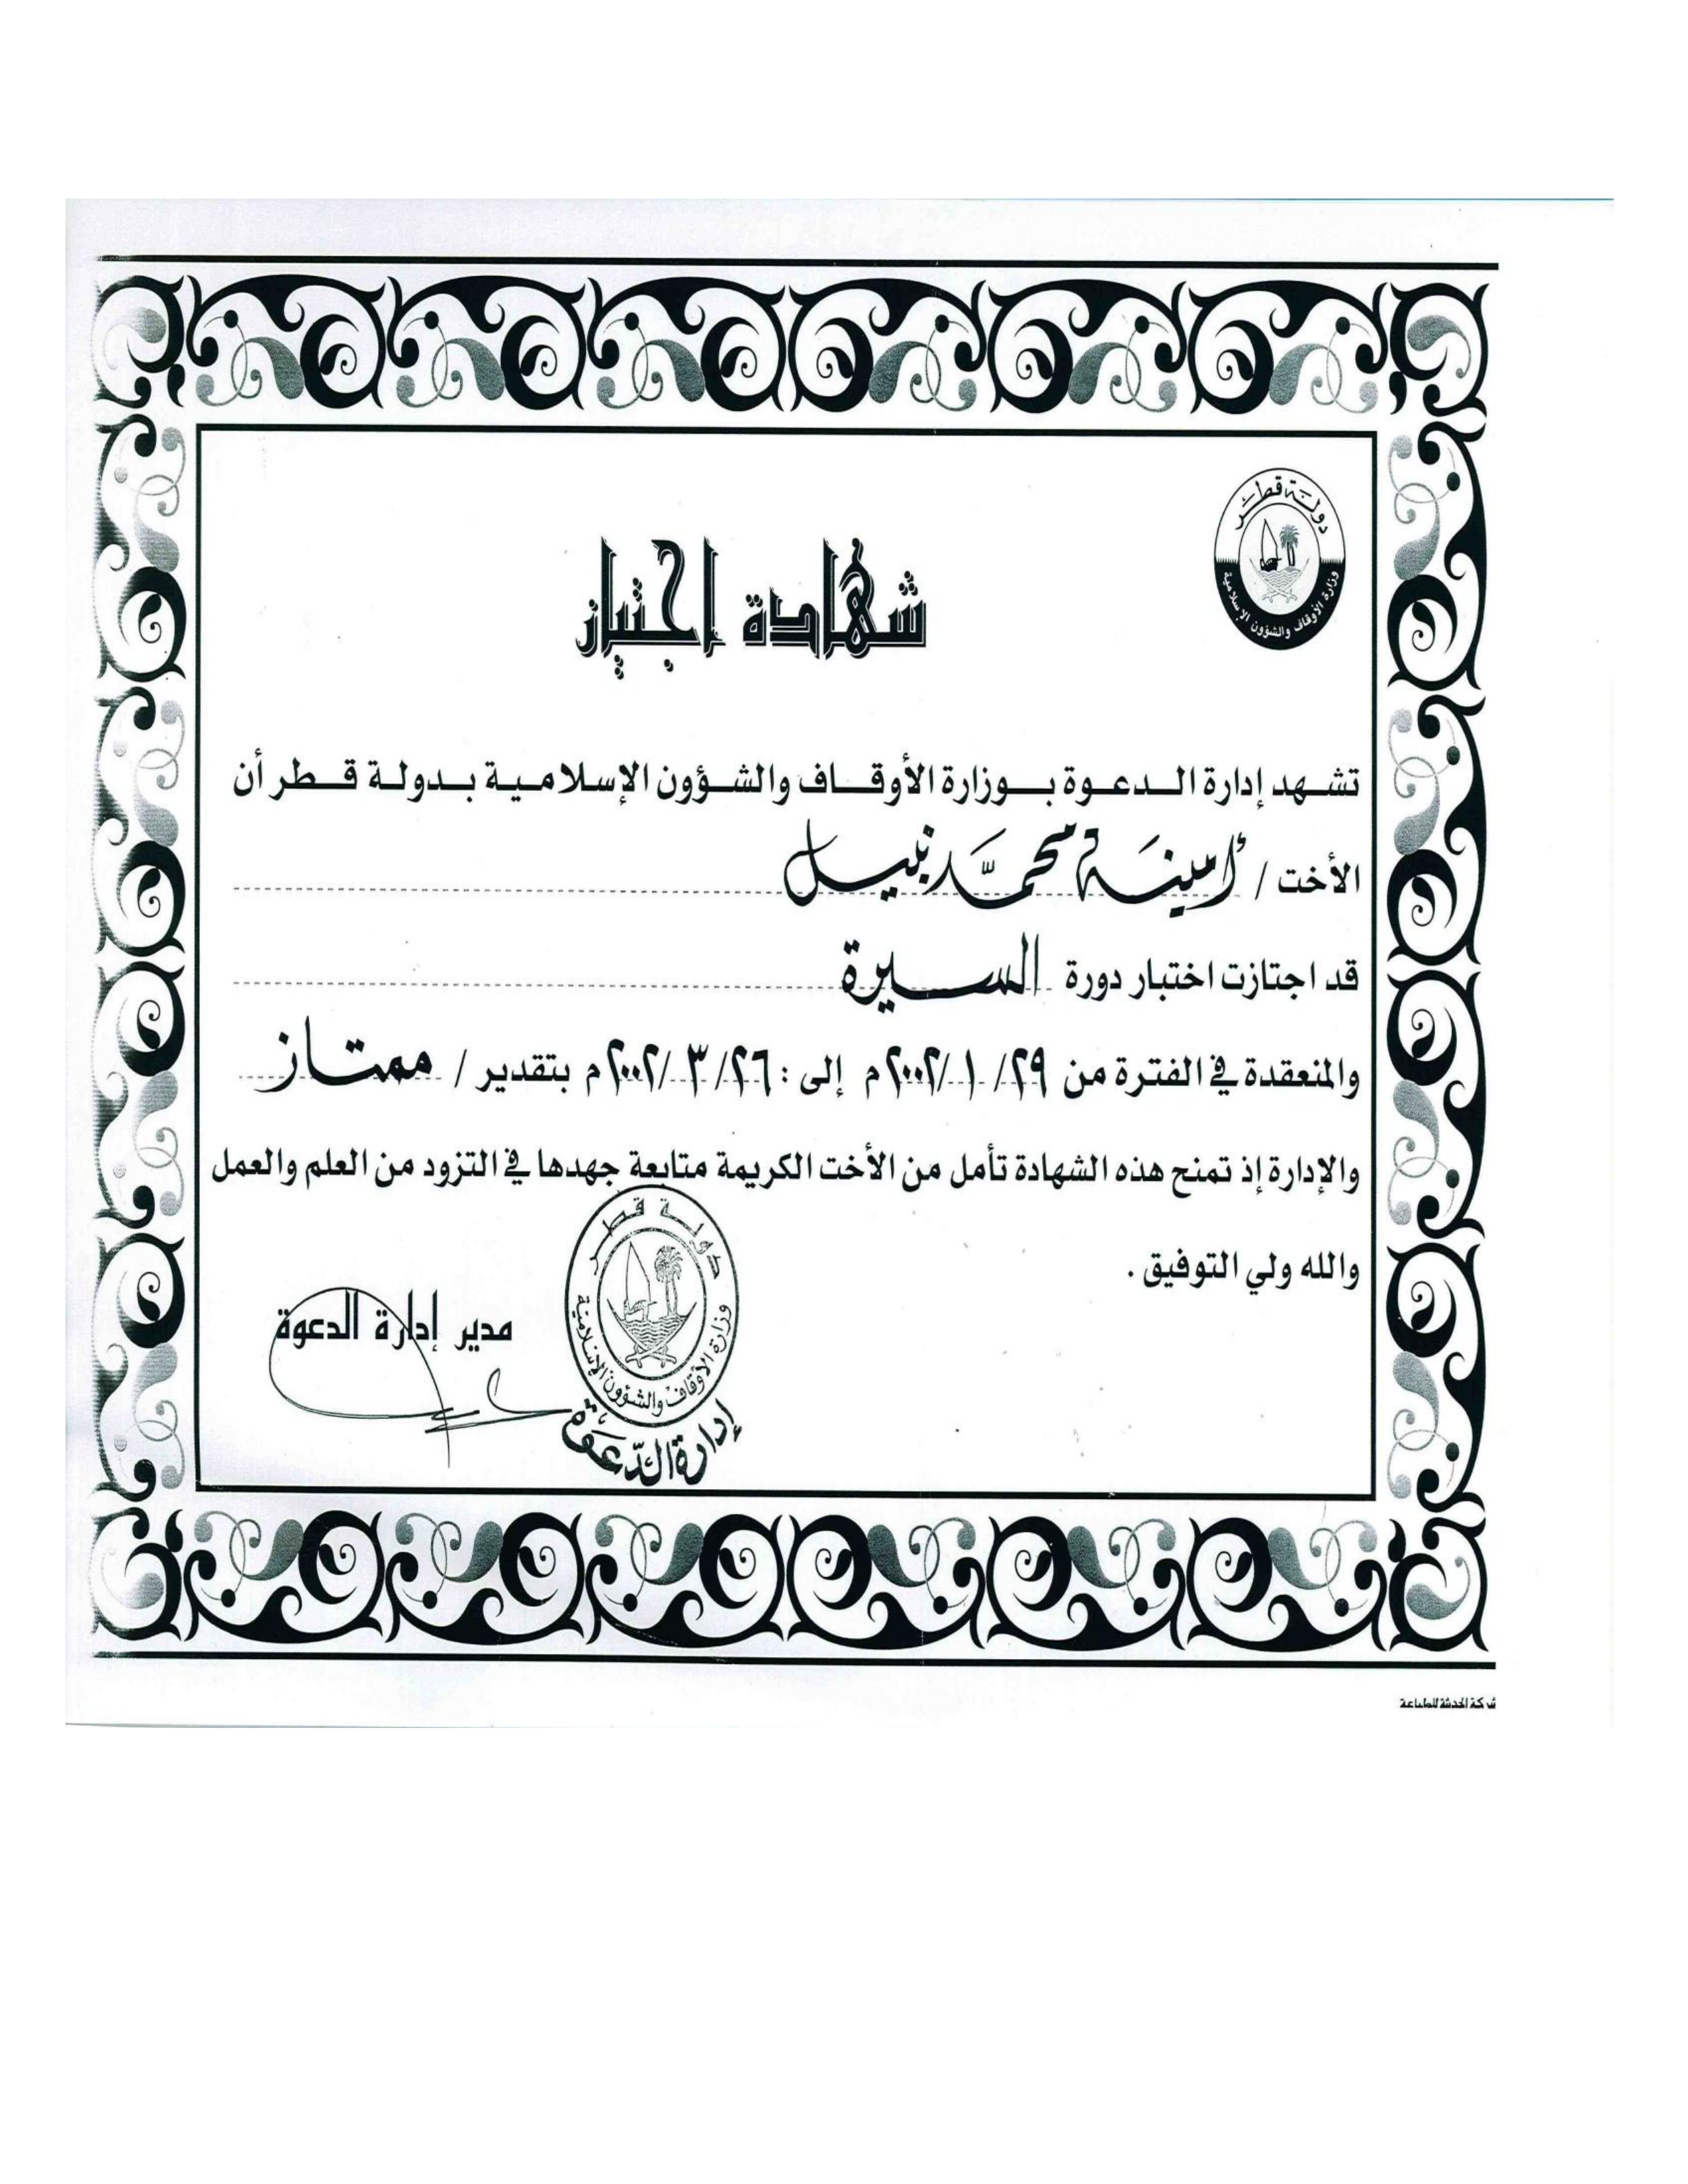 دولة قطر
وزارة الأوقاف والشؤون الإسلامية
شهادة اجتياز
تشهد إدارة الدعوة بوزارة الأوقاف والشؤون الإسلامية بدولة قطر أن
الأخت / أمينة محمد نبيل
قد اجتازت اختبار دورة السيرة
والمنعقدة في الفترة من ٢٩/ ١ /٢٠٠٢م إلى : ٢٦/ ٣ /٢٠٠٢م بتقدير / ممتاز
والإدارة إذ تمنح هذه الشهادة تأمل من الأخت الكريمة متابعة جهدها في التزود من العلم والعمل
والله ولي التوفيق .
مدير إدارة الدعوة
دولة قطر
وزارة الأوقاف والشؤون الإسلامية
إدارة الدّعوة